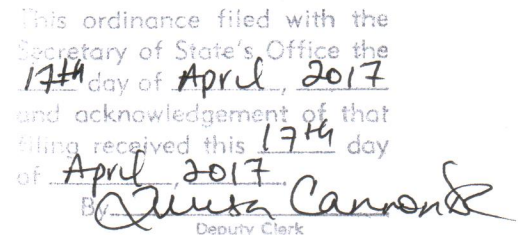 This ordinance filed with the
Secretary of State's Office the
17th day of April, 2017
and acknowledgement of that
filing received this 17th day
of April, 2017.
By Teresa Cannon
Deputy Clerk